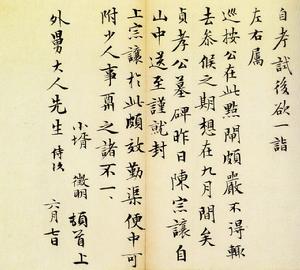 自孝試後欲一詣
左右屬
巡按公在此點閘頗嚴不得輒
去參候之期想在九月間矣
貞孝公墓碑昨日陳宗讓自
山中送至謹就封
上宗讓於此頗放勤渠便中可
附少人事再之諸不一、
外舅大人先生 侍次
小壻 徵明 頓首上
六月七日